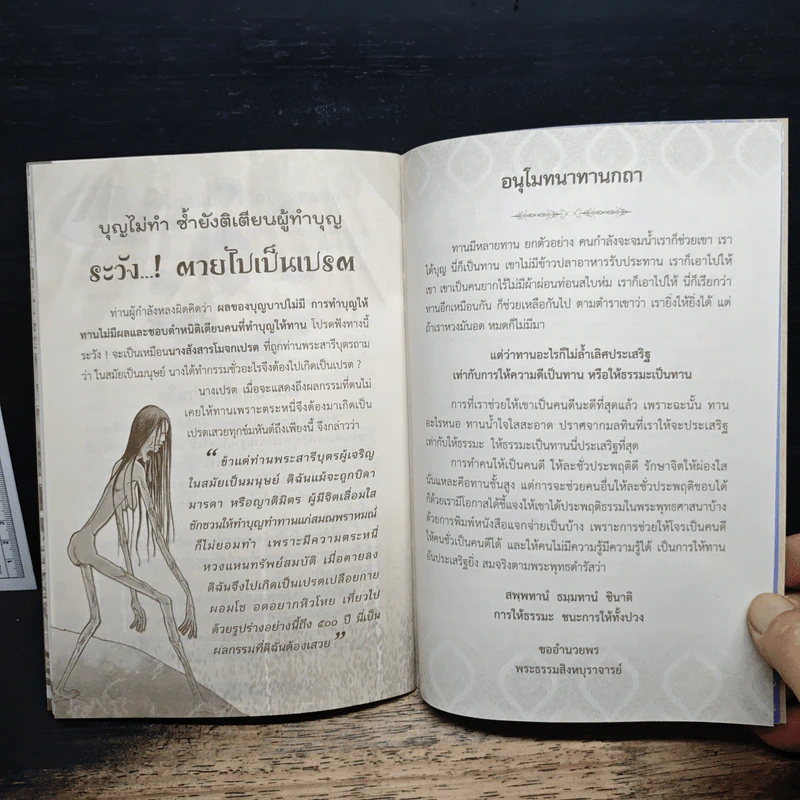 บุญไม่ทำ ซ้ำยังติเตียนผู้ทำบุญ
ระวัง...! ตายไปเป็นเปรต
ท่านผู้กำลังหลงผิดคิดว่า ผลของบุญบาปไม่มี การทำบุญให้
ทานไม่มีผลและชอบตำหนิติเตียนคนที่ทำบุญให้ทาน โปรดฟังทางนี้
ระวัง ! จะเป็นเหมือนนางสังสารโมจกเปรต ที่ถูกท่านพระสารีบุตรถาม
ว่า ในสมัยเป็นมนุษย์ นางได้ทำกรรมชั่วอะไรจึงต้องไปเกิดเป็นเปรต ?
นางเปรต เมื่อจะแสดงถึงผลกรรมที่ตนไม่
เคยให้ทานเพราะตระหนี่จึงต้องมาเกิดเป็น
เปรตเสวยทุกข์มหันต์ถึงเพียงนี้ จึงกล่าวว่า
“ ข้าแต่ท่านพระสารีบุตรผู้เจริญ
ในสมัยเป็นมนุษย์ ดิฉันแม้จะถูกบิดา
มารดา หรือญาติมิตร ผู้มีจิตเลื่อมใส
ชักชวนให้ทำบุญทำทานแก่สมณพราหมณ์
ก็ไม่ยอมทำ เพราะมีความตระหนี่
หวงแหนทรัพย์สมบัติ เมื่อตายลง
ดิฉันจึงไปเกิดเป็นเปรตเปลือยกาย
ผอมโซ อดอยากหิวโหย เที่ยวไป
ด้วยรูปร่างอย่างนี้ถึง ๕๐๐ ปี นี่เป็น
ผลกรรมที่ดิฉันต้องเสวย ”
อนุโมทนาทานกถา
ทานมีหลายทาน ยกตัวอย่าง คนกำลังจะจมน้ำเราก็ช่วยเขา เรา
ได้บุญ นี่ก็เป็นทาน เขาไม่มีข้าวปลาอาหารรับประทาน เราก็เอาไปให้
เขา เขาเป็นคนยากไร้ไม่มีผ้าผ่อนท่อนสไบห่ม เราก็เอาไปให้ นี่ก็เรียกว่า
ทานอีกเหมือนกัน ก็ช่วยเหลือกันไป ตามตำราเขาว่า เรายิ่งให้ยิ่งได้ แต่
ถ้าเราหวงมันอด หมดก็ไม่มีมา
แต่ว่าทานอะไรก็ไม่ล้ำเลิศประเสริฐ
เท่ากับการให้ความดีเป็นทาน หรือให้ธรรมะเป็นทาน
การที่เราช่วยให้เขาเป็นคนดีนะดีที่สุดแล้ว เพราะฉะนั้น ทาน
อะไรหนอ ทานน้ำใจใสสะอาด ปราศจากมลทินที่เราให้จะประเสริฐ
เท่ากับให้ธรรมะ ให้ธรรมะเป็นทานนี่ประเสริฐที่สุด
การทำคนให้เป็นคนดี ให้ละชั่วประพฤติดี รักษาจิตให้ผ่องใส
นั่นแหละคือทานชั้นสูง แต่การจะช่วยคนอื่นให้ละชั่วประพฤติชอบได้
ก็ด้วยเรามีโอกาสได้ชี้แจงให้เขาได้ประพฤติธรรมในพระพุทธศาสนาบ้าง
ด้วยการพิมพ์หนังสือแจกจ่ายเป็นบ้าง เพราะการช่วยให้โจรเป็นคนดี
ให้คนชั่วเป็นคนดีได้ และให้คนไม่มีความรู้มีความรู้ได้ เป็นการให้ทาน
อันประเสริฐยิ่ง สมจริงตามพระพุทธดำรัสว่า
สพฺพทานํ ธมฺมทานํ ชินาติ
การให้ธรรมะ ชนะการให้ทั้งปวง
ขออำนวยพร
พระธรรมสิงหบุราจารย์